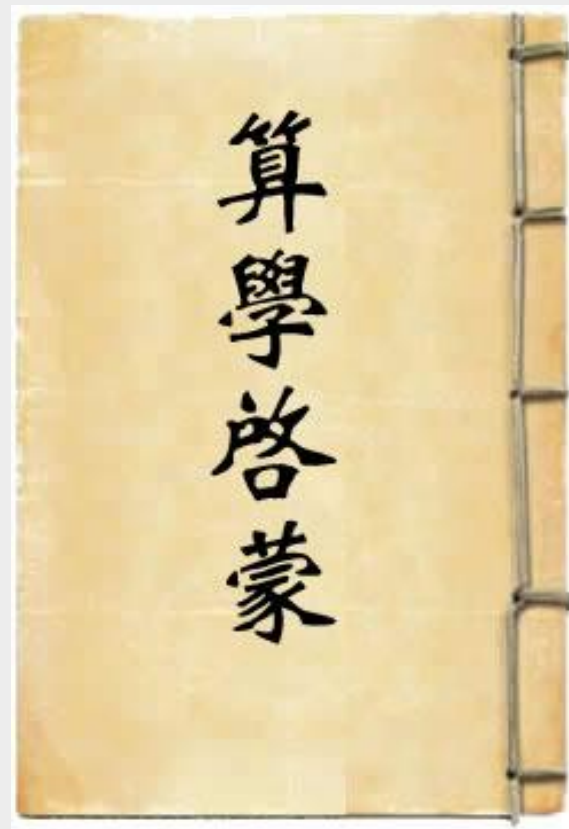 算學啓蒙